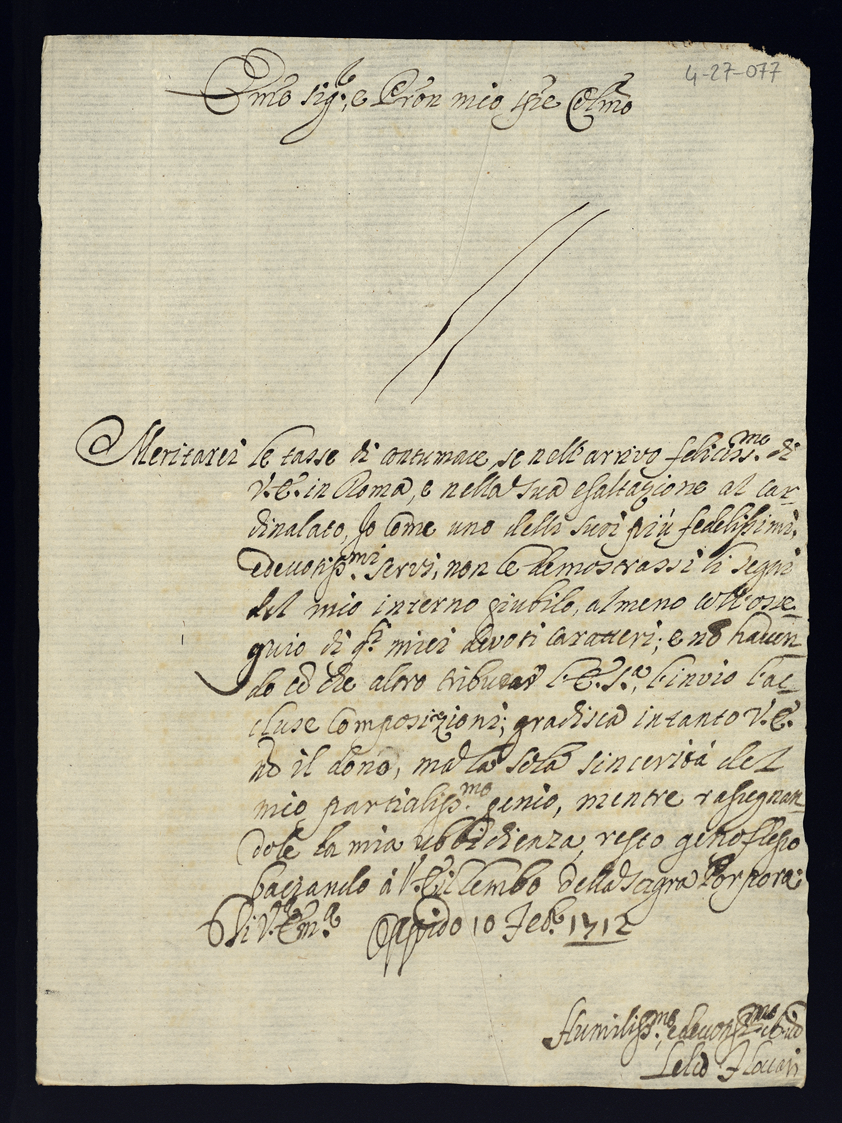 4-27-077
Emo Sig.r, e Pron mio sre Colmo
Meritarei le tasse di contumace, se nell'arrivo feliciss.mo di
V.E. in Roma, e nella sua esaltazione al car-
dinalato, Io come uno delli suoi più fedelissimi,
e devotiss.mi servi, non le demostrassi li segni
del mio interno giubilo, almeno coll'osse-
quio di q.ti miei devoti caratteri; e nõ haven-
do cò che altro tributar l'E.S.a, l'invio l'ac-
cluse composizioni; gradisca intanto V.E.
nõ il dono, ma la sola sincerità del
mio partialiss.mo genio, mentre rassegnan-
dole la mia ubbidienza, resto genoflesso
baciando à V.E. il lembo della sagra Porpora;
Di V.ra Em.a Oppido 10 Feb.o 1712
Humiliss.mo, e devotiss.mo
Lelio